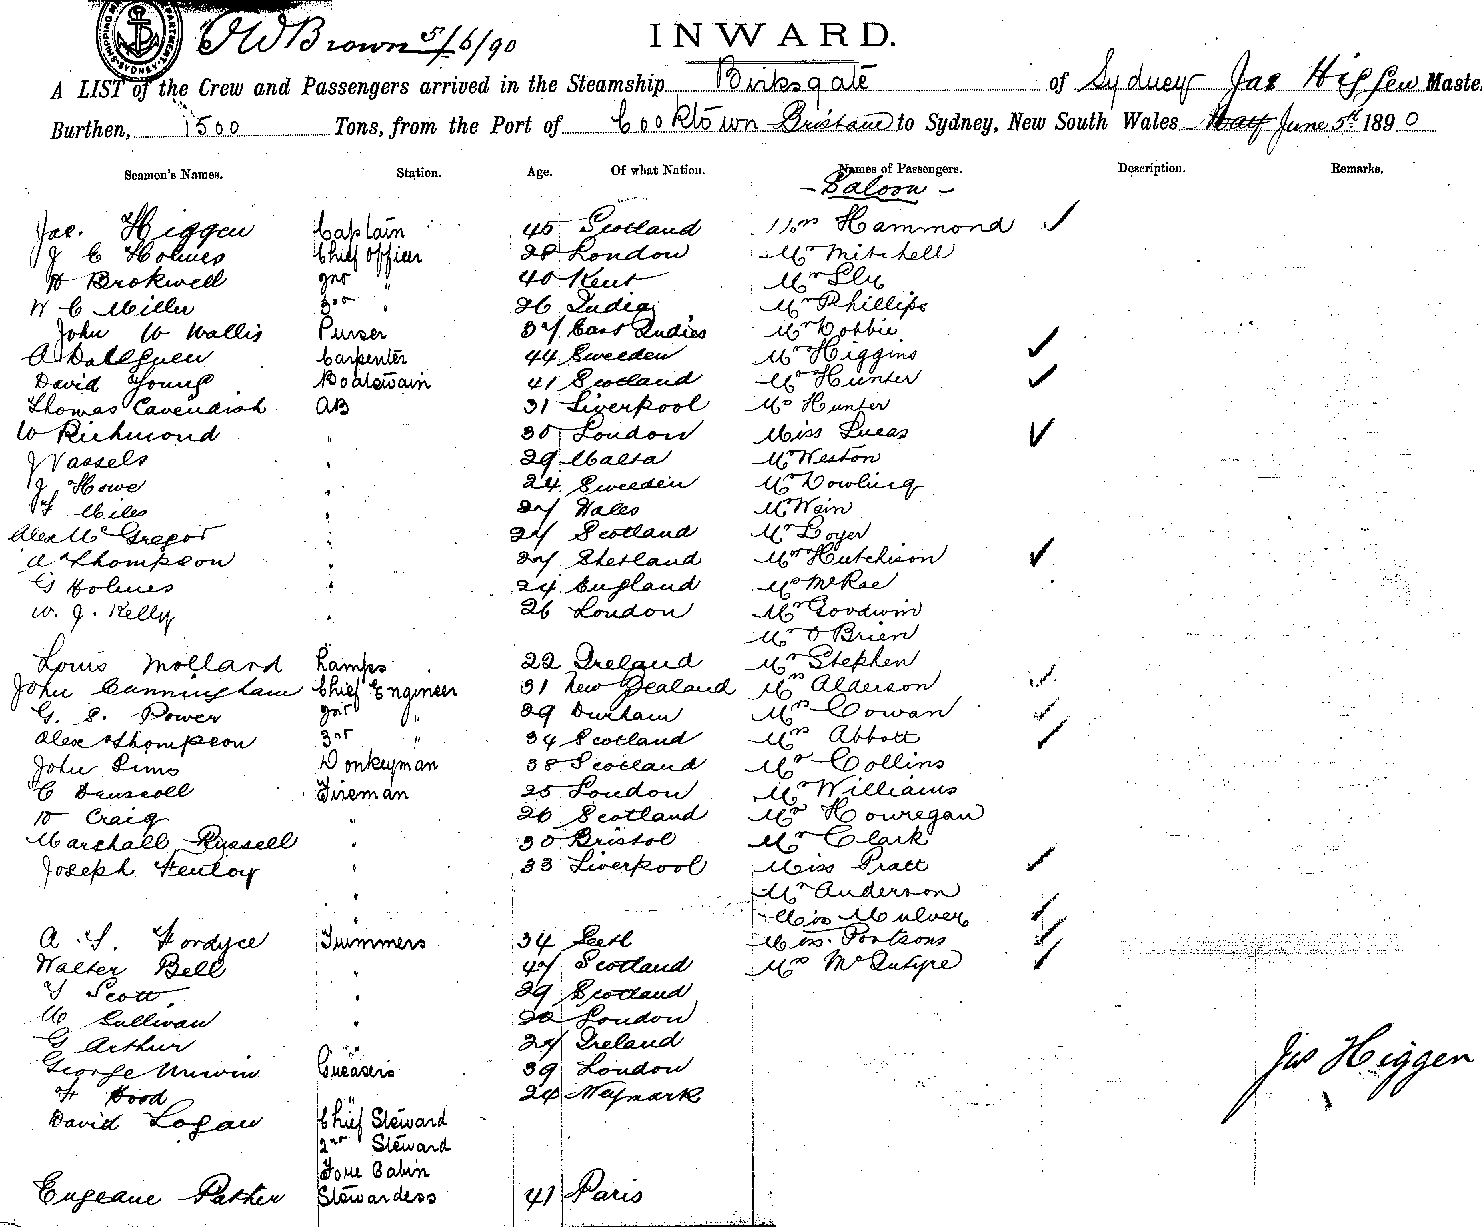 JWBrown 5/6/90
INWARD.
A LIST of the Crew and Passengers arrived in the Steamship Birksgate of Sydney Jas Higgen Master
Burthen, 1500 Tons, from the Port of Cooktown Brisbane to Sydney, New South Wales May June 5th 1890
Seamen's Names. Station. Age. Of what Nation. Names of Passengers. Description. Remarks.
- Saloon -
Jas. Higgen Captain 45 Scotland Mrs Hammond ✓
J C Holmes Chief Officer 28 London Mr Mitchell
H Brokwell 2nd " 40 Kent Mr Sly
W C Miller 3rd " 26 India Mr Phillips
John W Wallis Purser 37 East Indies Mr
A Carpenter 44 Sweeden Mr Higgins ✓
David Young Boatswain 41 Scotland Mr Hunter ✓
Thomas Cavendish AB 31 Liverpool Mrs Hunter
W Richmond " 30 London Miss Lucas ✓
J Vassels " 29 Malta Mr Weston
J Howe " 24 Sweeden Mr Dowling
T Miles " 27 Wales Mr Wein
Alex Mc Gregor " 27 Scotland Mr Loyer
A Thompson " 27 Shetland Mr Hutchison ✓
G Holmes " 24 England Mrs McRae
W. J. Kelly " 26 London Mr Goodwin
Mr O'Brien
Louis Molland Lamps 22 Ireland Mr Stephen
John Cunningham Chief Engineer 31 New Zealand Mrs Alderson ✓
G. S. Power 2nd " 29 Durham Mrs Cowan ✓
Alex Thompson 3rd " 34 Scotland Mrs Abbott ✓
John Sims Donkeyman 38 Scotland Mr Collins
C Fireman 25 London Mr Williams
Craig " 26 Scotland Mr Howregan
Marshall Russell " 30 Bristol Mr Clark
Joseph " 33 Liverpool Miss Pratt ✓
" Mr Anderson
" Miss Mulvey ✓
A. S. Fordyce Trummers 34 Leith Miss ✓
Walter Bell " 47 Scotland Mrs McIntyre ✓
T Scott " 29 Scotland
M Sullivan " London
G Arthur " 27 Ireland
George Unwin Greasers 39 London
F Hood 24
David Logan Chief Steward
2nd Steward
Fore Cabin
Eugeane Stewardess 41 Paris
Jas Higgen